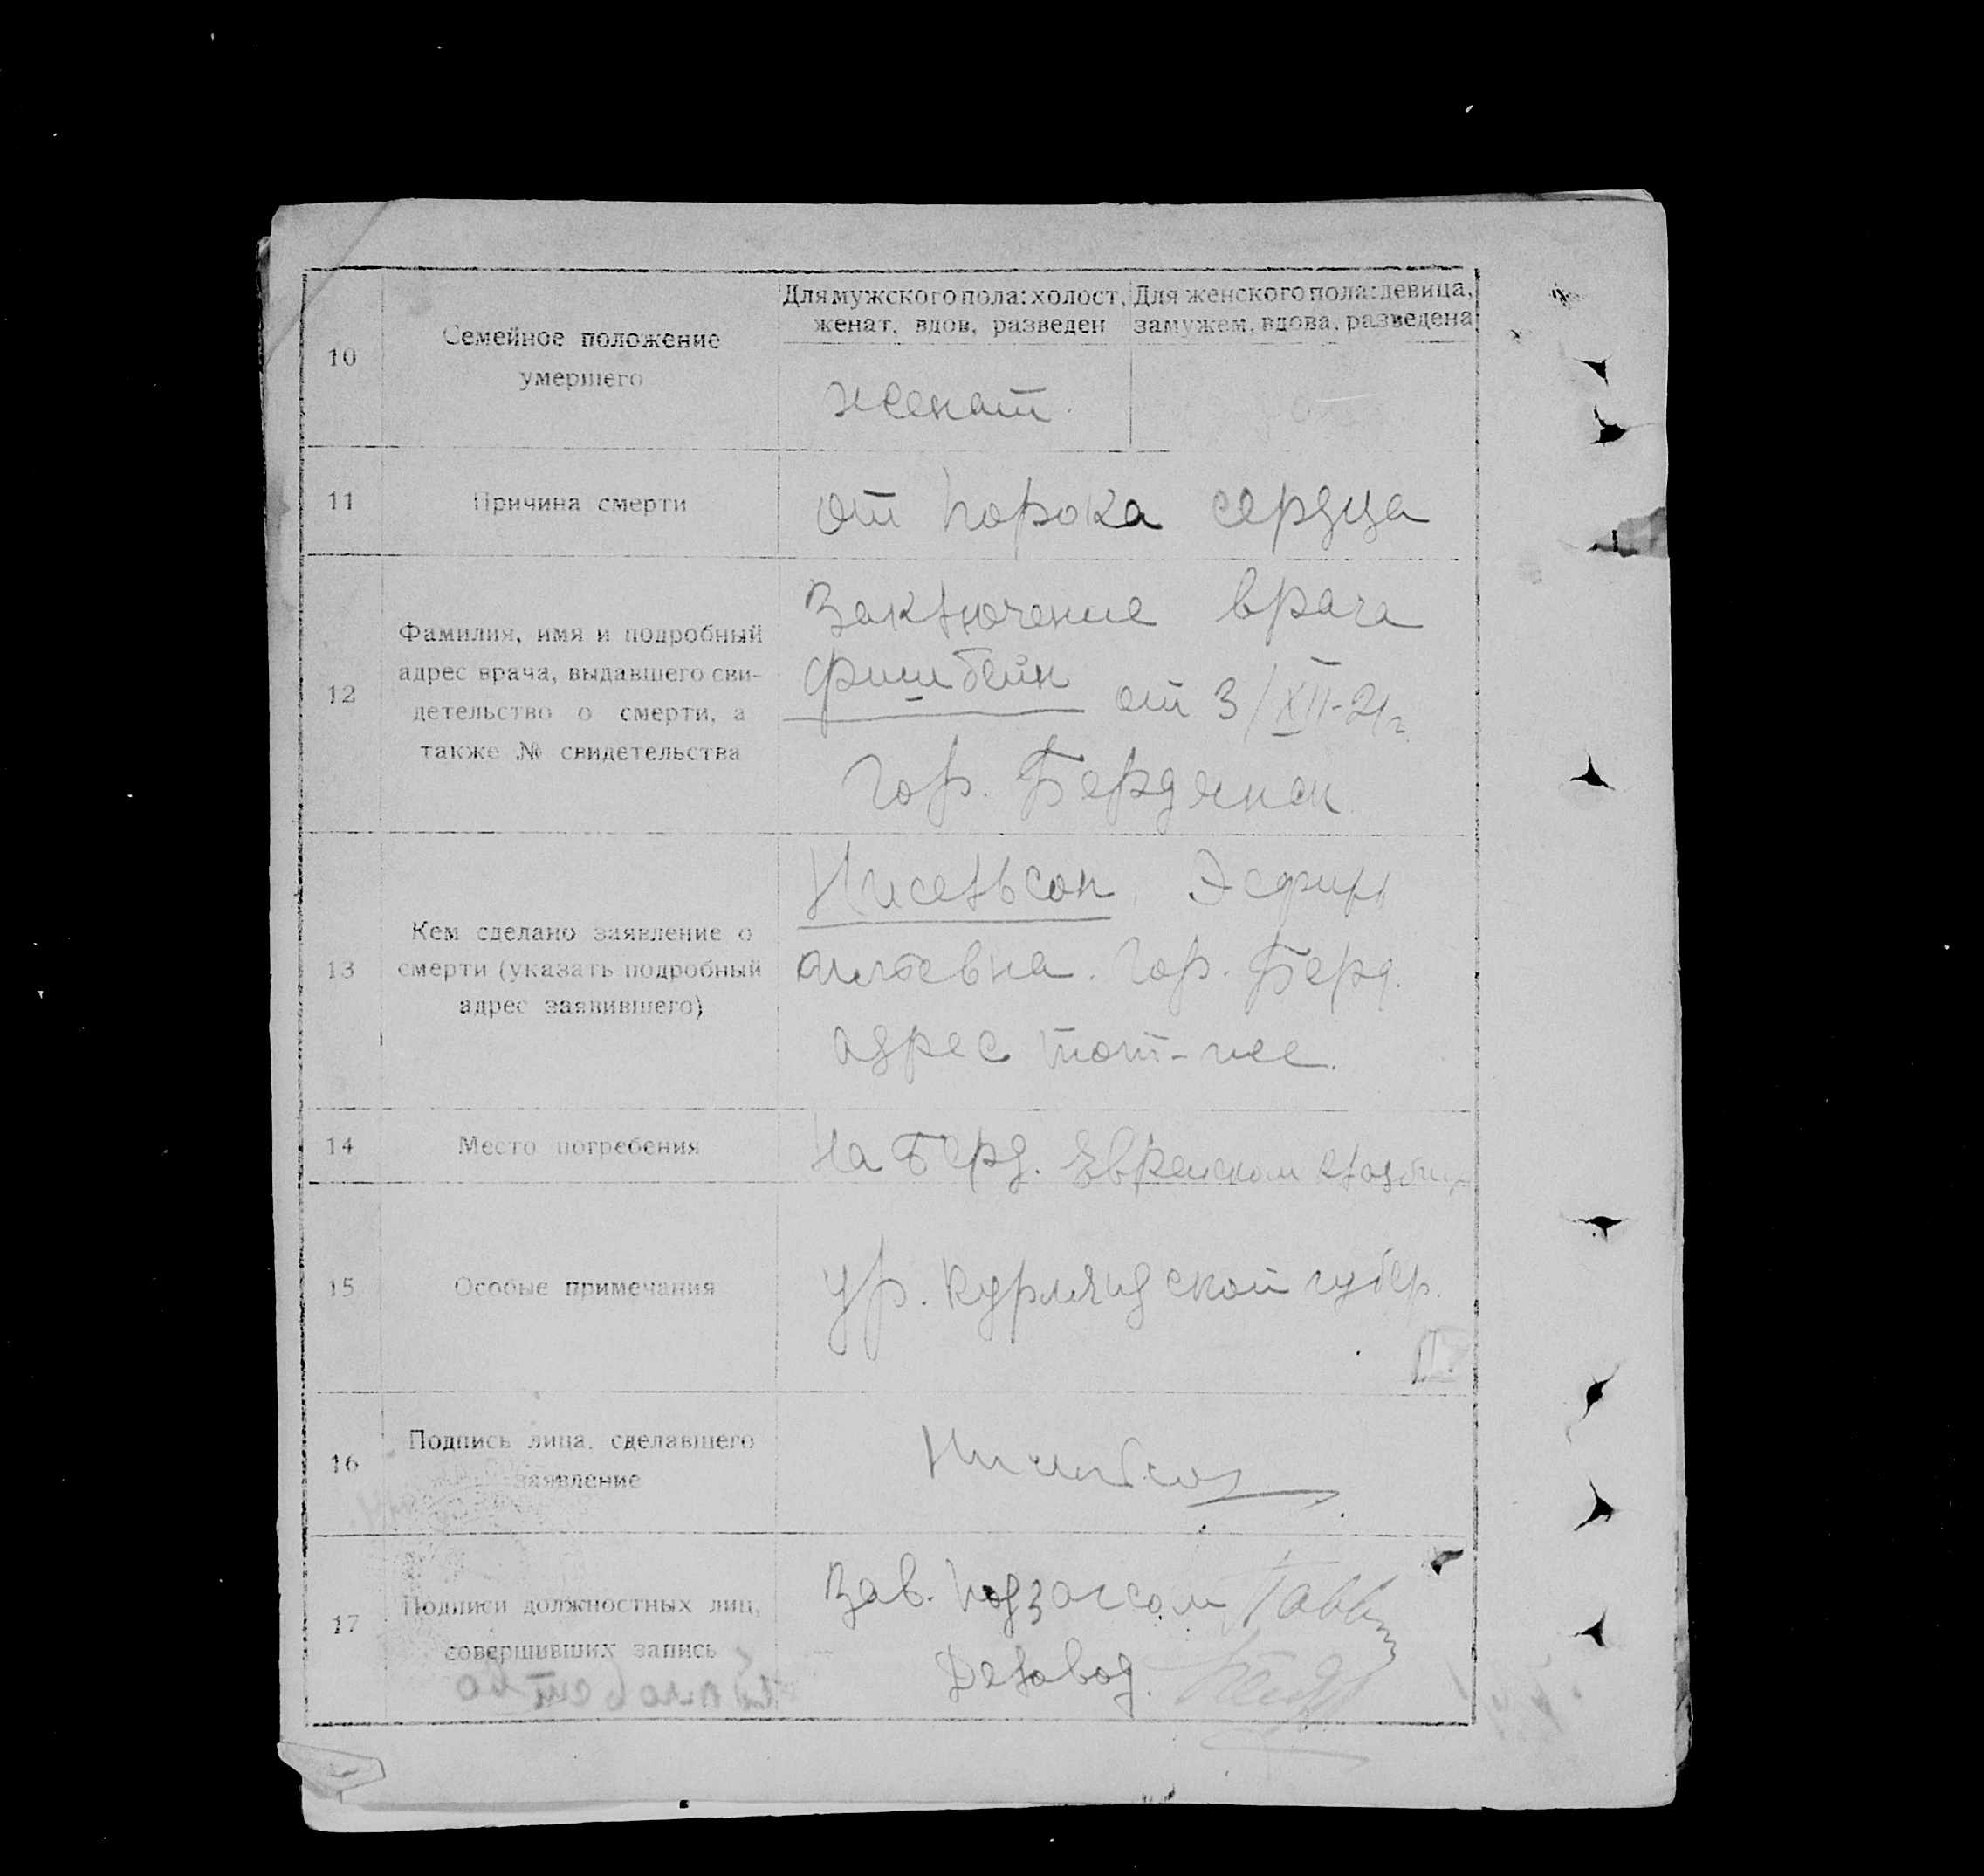 Для мужского пола: холост, женат, вдов, разведен
Для женского пола: девица, замужем, вдова, разведена
10
Семейное положение
умершего
женат.
11
Причина смерти
от порока сердца
12
Фамилия, имя и подробный
адрес врача, выдавшего сви-
детельство о смерти, а
также № свидетельства
Заключение врача
Фишбейн от 3/XII-21г.
Гор. Бердянск
13
Кем сделано заявление о
смерти (указать подробный
адрес заявившего)
Нисельсон Эсфирь
Гор. Берд.
адрес тот-же.
14
Место погребения
На Берд. Еврейском кладбищ
15
Особые примечания
ур. Курляндской губер.
16
Подпись лица, сделавшего
заявление
17
Подписи должностных лиц,
совершивших запись
Зав. Подзагсом
Деловод.